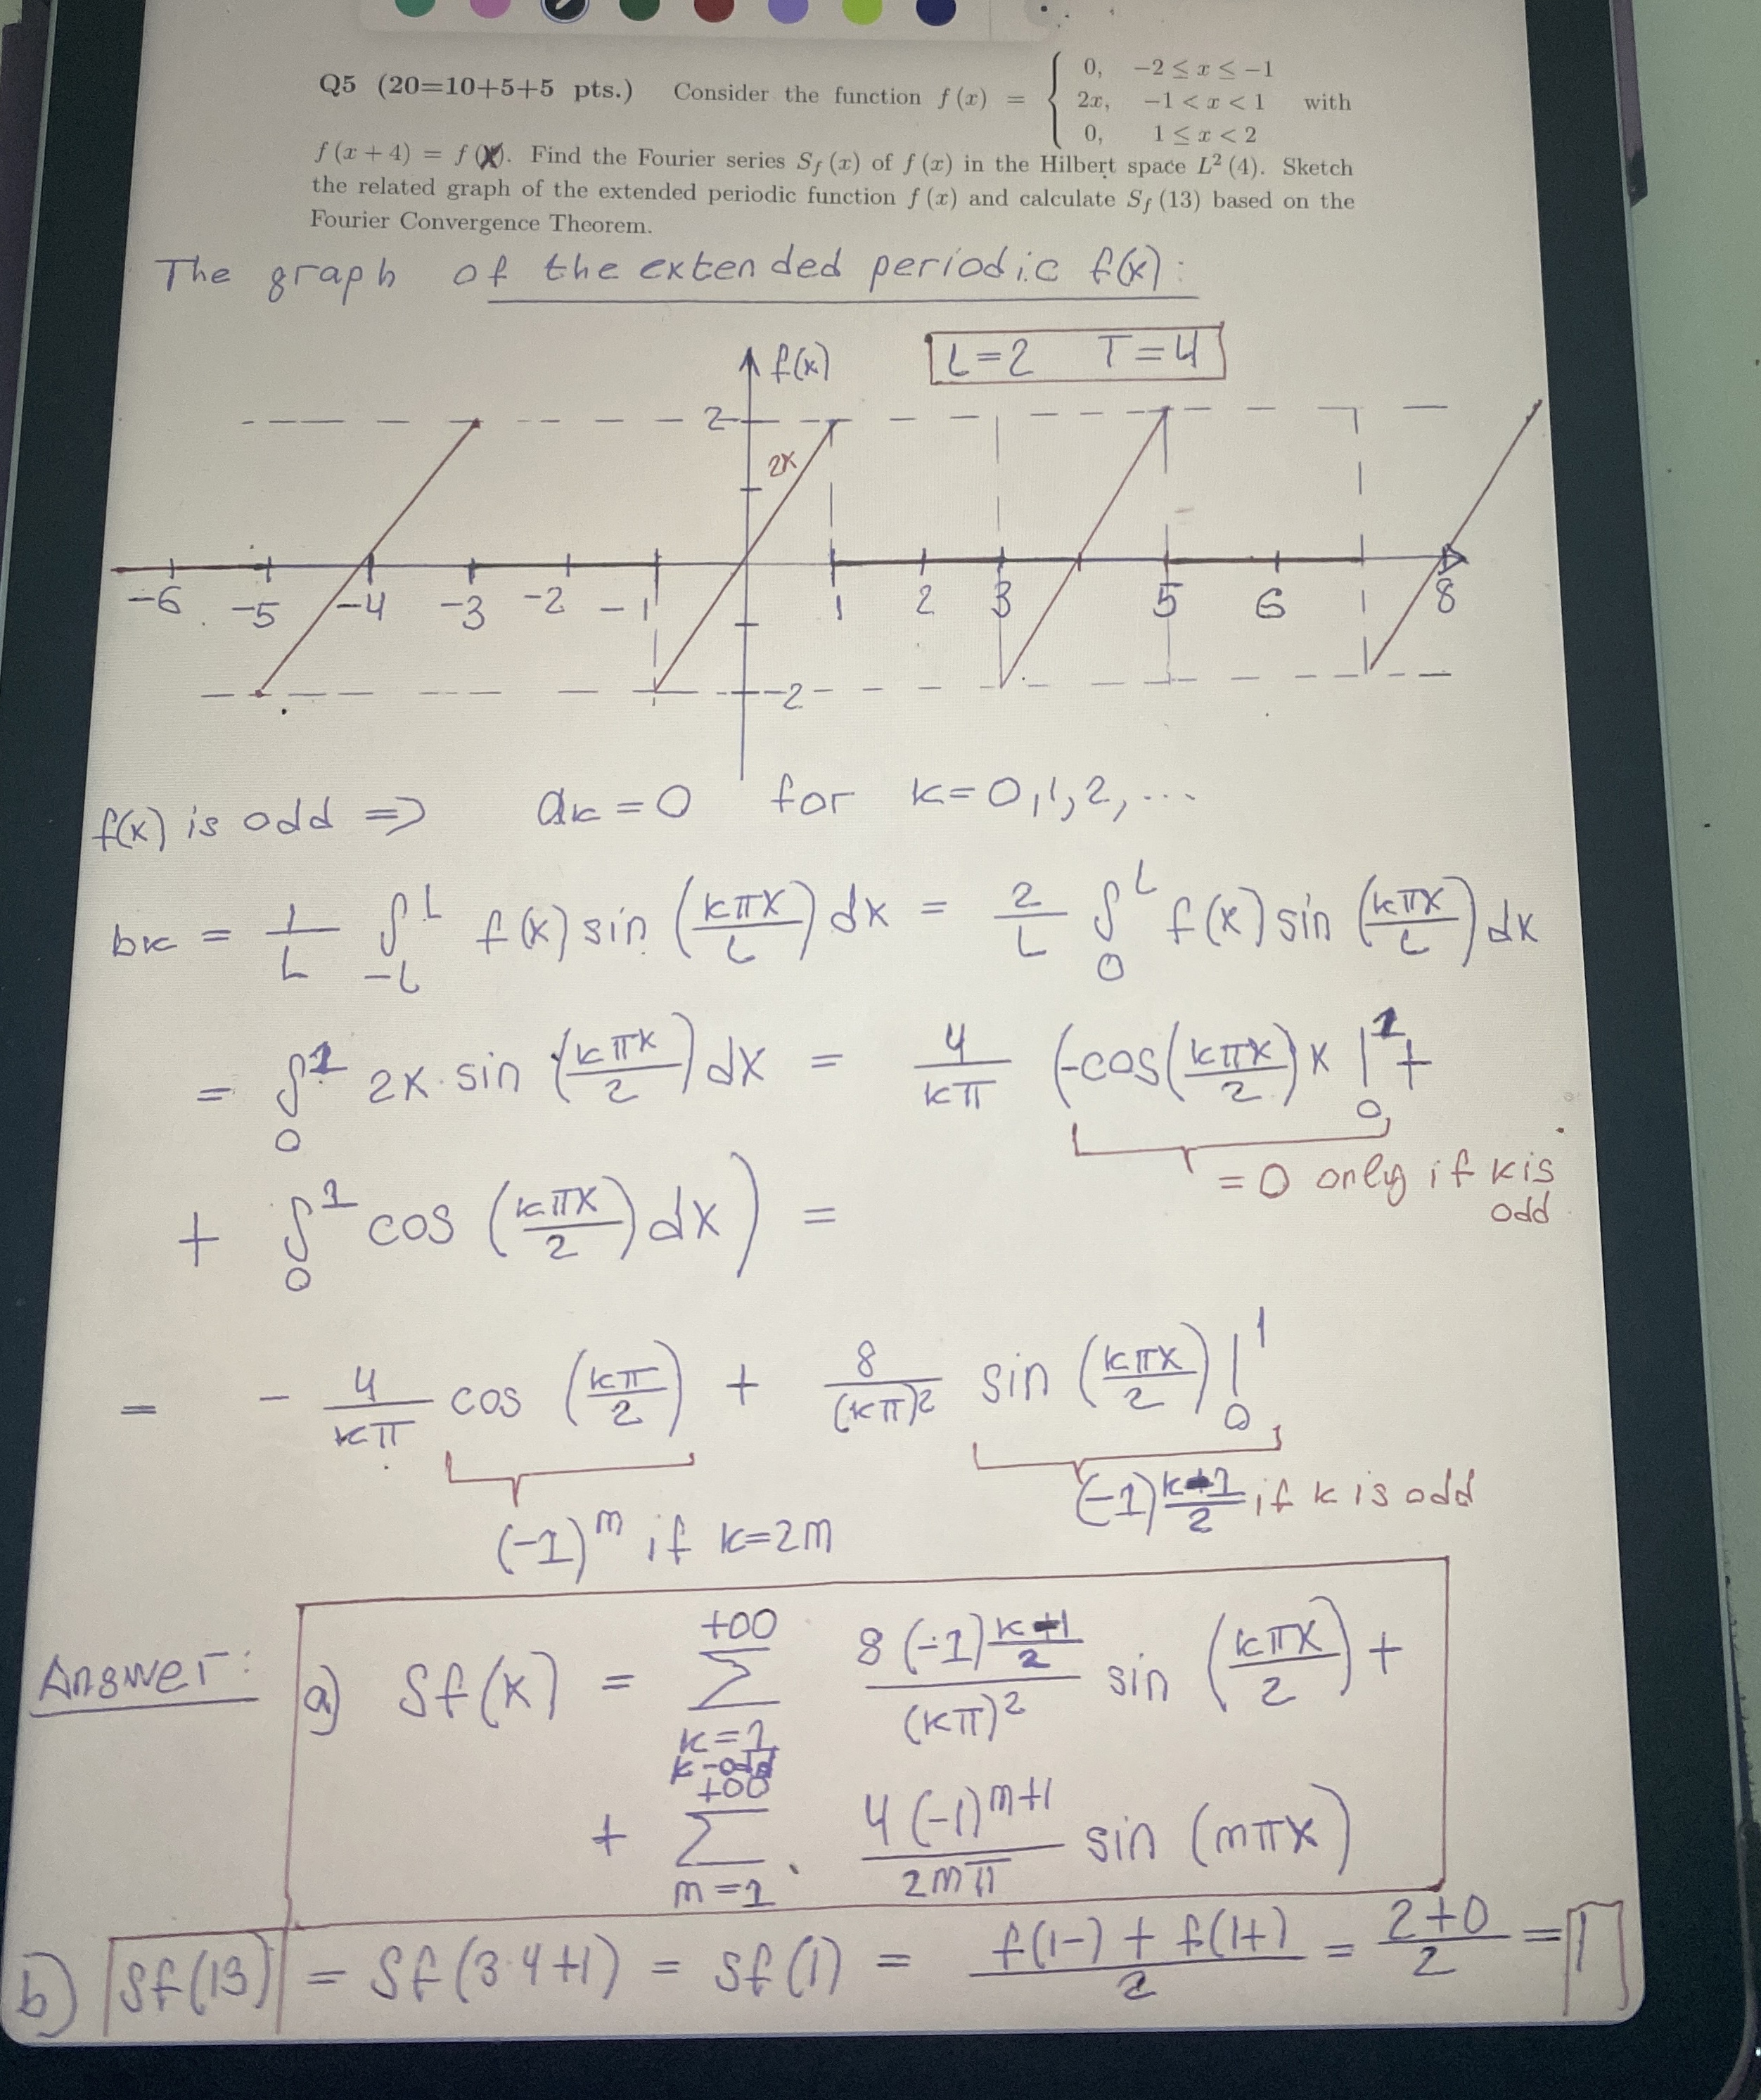 Q5 (20=10+5+5 pts.) Consider the function f(x) = { 0, -2 ≤ x ≤ -1
2x, -1 < x < 1 with
0, 1 ≤ x < 2
f(x+4) = f(x). Find the Fourier series S_f(x) of f(x) in the Hilbert space L²(4). Sketch
the related graph of the extended periodic function f(x) and calculate S_f(13) based on the
Fourier Convergence Theorem.
The graph of the extended periodic f(x):
f(x) L=2 T=4
2
2x
-6 -5 -4 -3 -2 -1 1 2 3 5 6 8
-2
f(x) is odd => a_k = 0 for k=0,1,2,...
b_k = 1/L ∫_{-L}^{L} f(x) sin(kπx/L) dx = 2/L ∫_0^L f(x) sin(kπx/L) dx
= ∫_0^1 2x·sin(kπx/2) dx = 4/kπ (-cos(kπx/2) x |_0^1 +
=0 only if k is
odd
+ ∫_0^1 cos(kπx/2) dx) =
= - 4/kπ cos(kπ/2) + 8/(kπ)² sin(kπx/2) |_0^1
(-1)^m if k=2m (-1)^{(k-1)/2} if k is odd
Answer: a) Sf(x) = Σ_{k=1, k-odd}^{+∞} 8(-1)^{(k-1)/2}/(kπ)² sin(kπx/2) +
+ Σ_{m=1}^{+∞} 4(-1)^{m+1}/2mπ sin(mπx)
b) Sf(13) = Sf(3·4+1) = Sf(1) = (f(1-) + f(1+))/2 = (2+0)/2 = 1